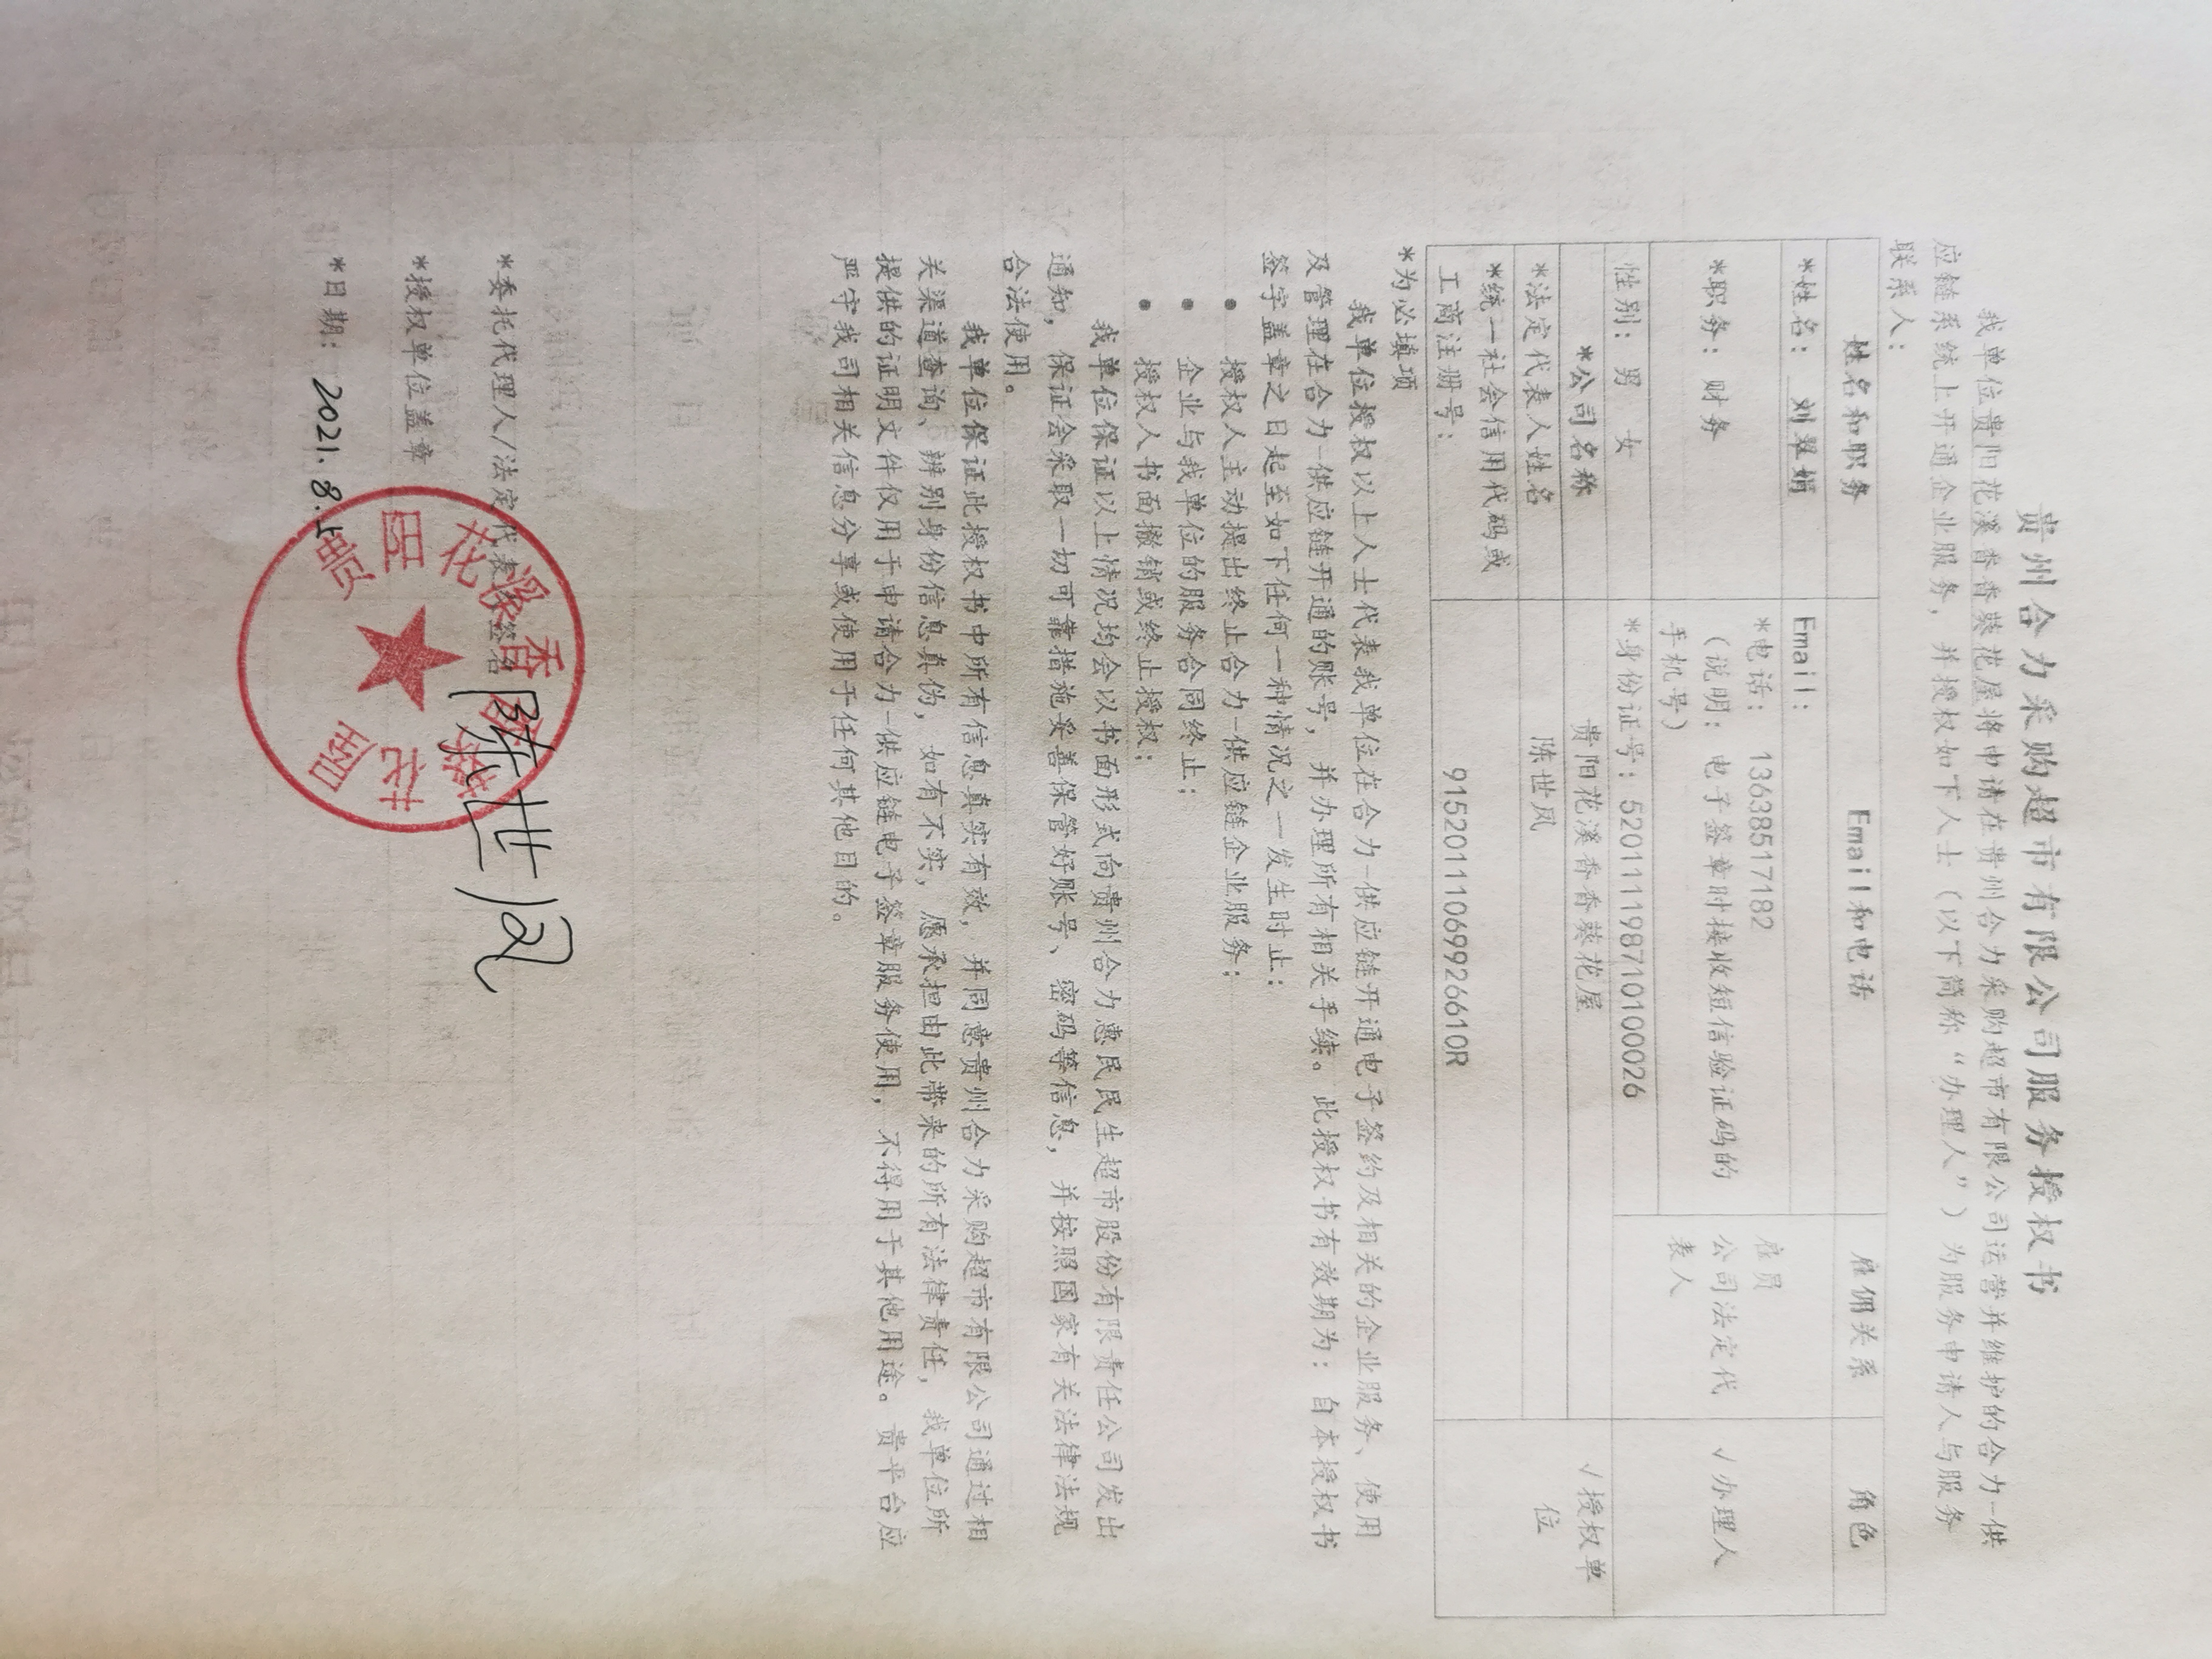 贵州合力采购超市有限公司服务授权书
我单位贵阳花溪香香葵花屋将申请在贵州合力采购超市有限公司运营并维护的合力一供
应链系统上开通企业服务，并授权如下人士（以下简称“办理人”）为服务申请人与服务
联系人：
姓名和职务 Email和电话 雇佣关系 角色
*姓名： 刘翠娟 Email：
*职务：财务 *电话： 13638517182
（说明：电子签章时接收短信验证码的
手机号）
雇员
公司法定代
表人
√办理人
性别：男 女 *身份证号：520111198710100026
*公司名称 贵阳花溪香香葵花屋
*法定代表人姓名 陈世凤
*统一社会信用代码或
工商注册号：
91520111069926610R
√授权单
位
*为必填项
我单位授权以上人士代表我单位在合力一供应链开通电子签约及相关的企业服务、使用
及管理在合力一供应链开通的账号，并办理所有相关手续。此授权书有效期为：自本授权书
签字盖章之日起至如下任何一种情况之一发生时止：
• 授权人主动提出终止合力一供应链企业服务；
• 企业与我单位的服务合同终止；
• 授权人书面撤销或终止授权；
我单位保证以上情况均会以书面形式向贵州合力惠民民生超市股份有限责任公司发出
通知，保证会采取一切可靠措施妥善保管好账号、密码等信息，并按照国家有关法律法规
合法使用。
我单位保证此授权书中所有信息真实有效，并同意贵州合力采购超市有限公司通过相
关渠道查询、辨别身份信息真伪，如有不实，愿承担由此带来的所有法律责任，我单位所
提供的证明文件仅用于申请合力一供应链电子签章服务使用，不得用于其他用途。贵平台应
严守我司相关信息分享或使用于任何其他目的。
*委托代理人/法定代表人签名 陈世凤
*授权单位盖章
*日期： 2021.8.
贵阳花溪香香葵花屋